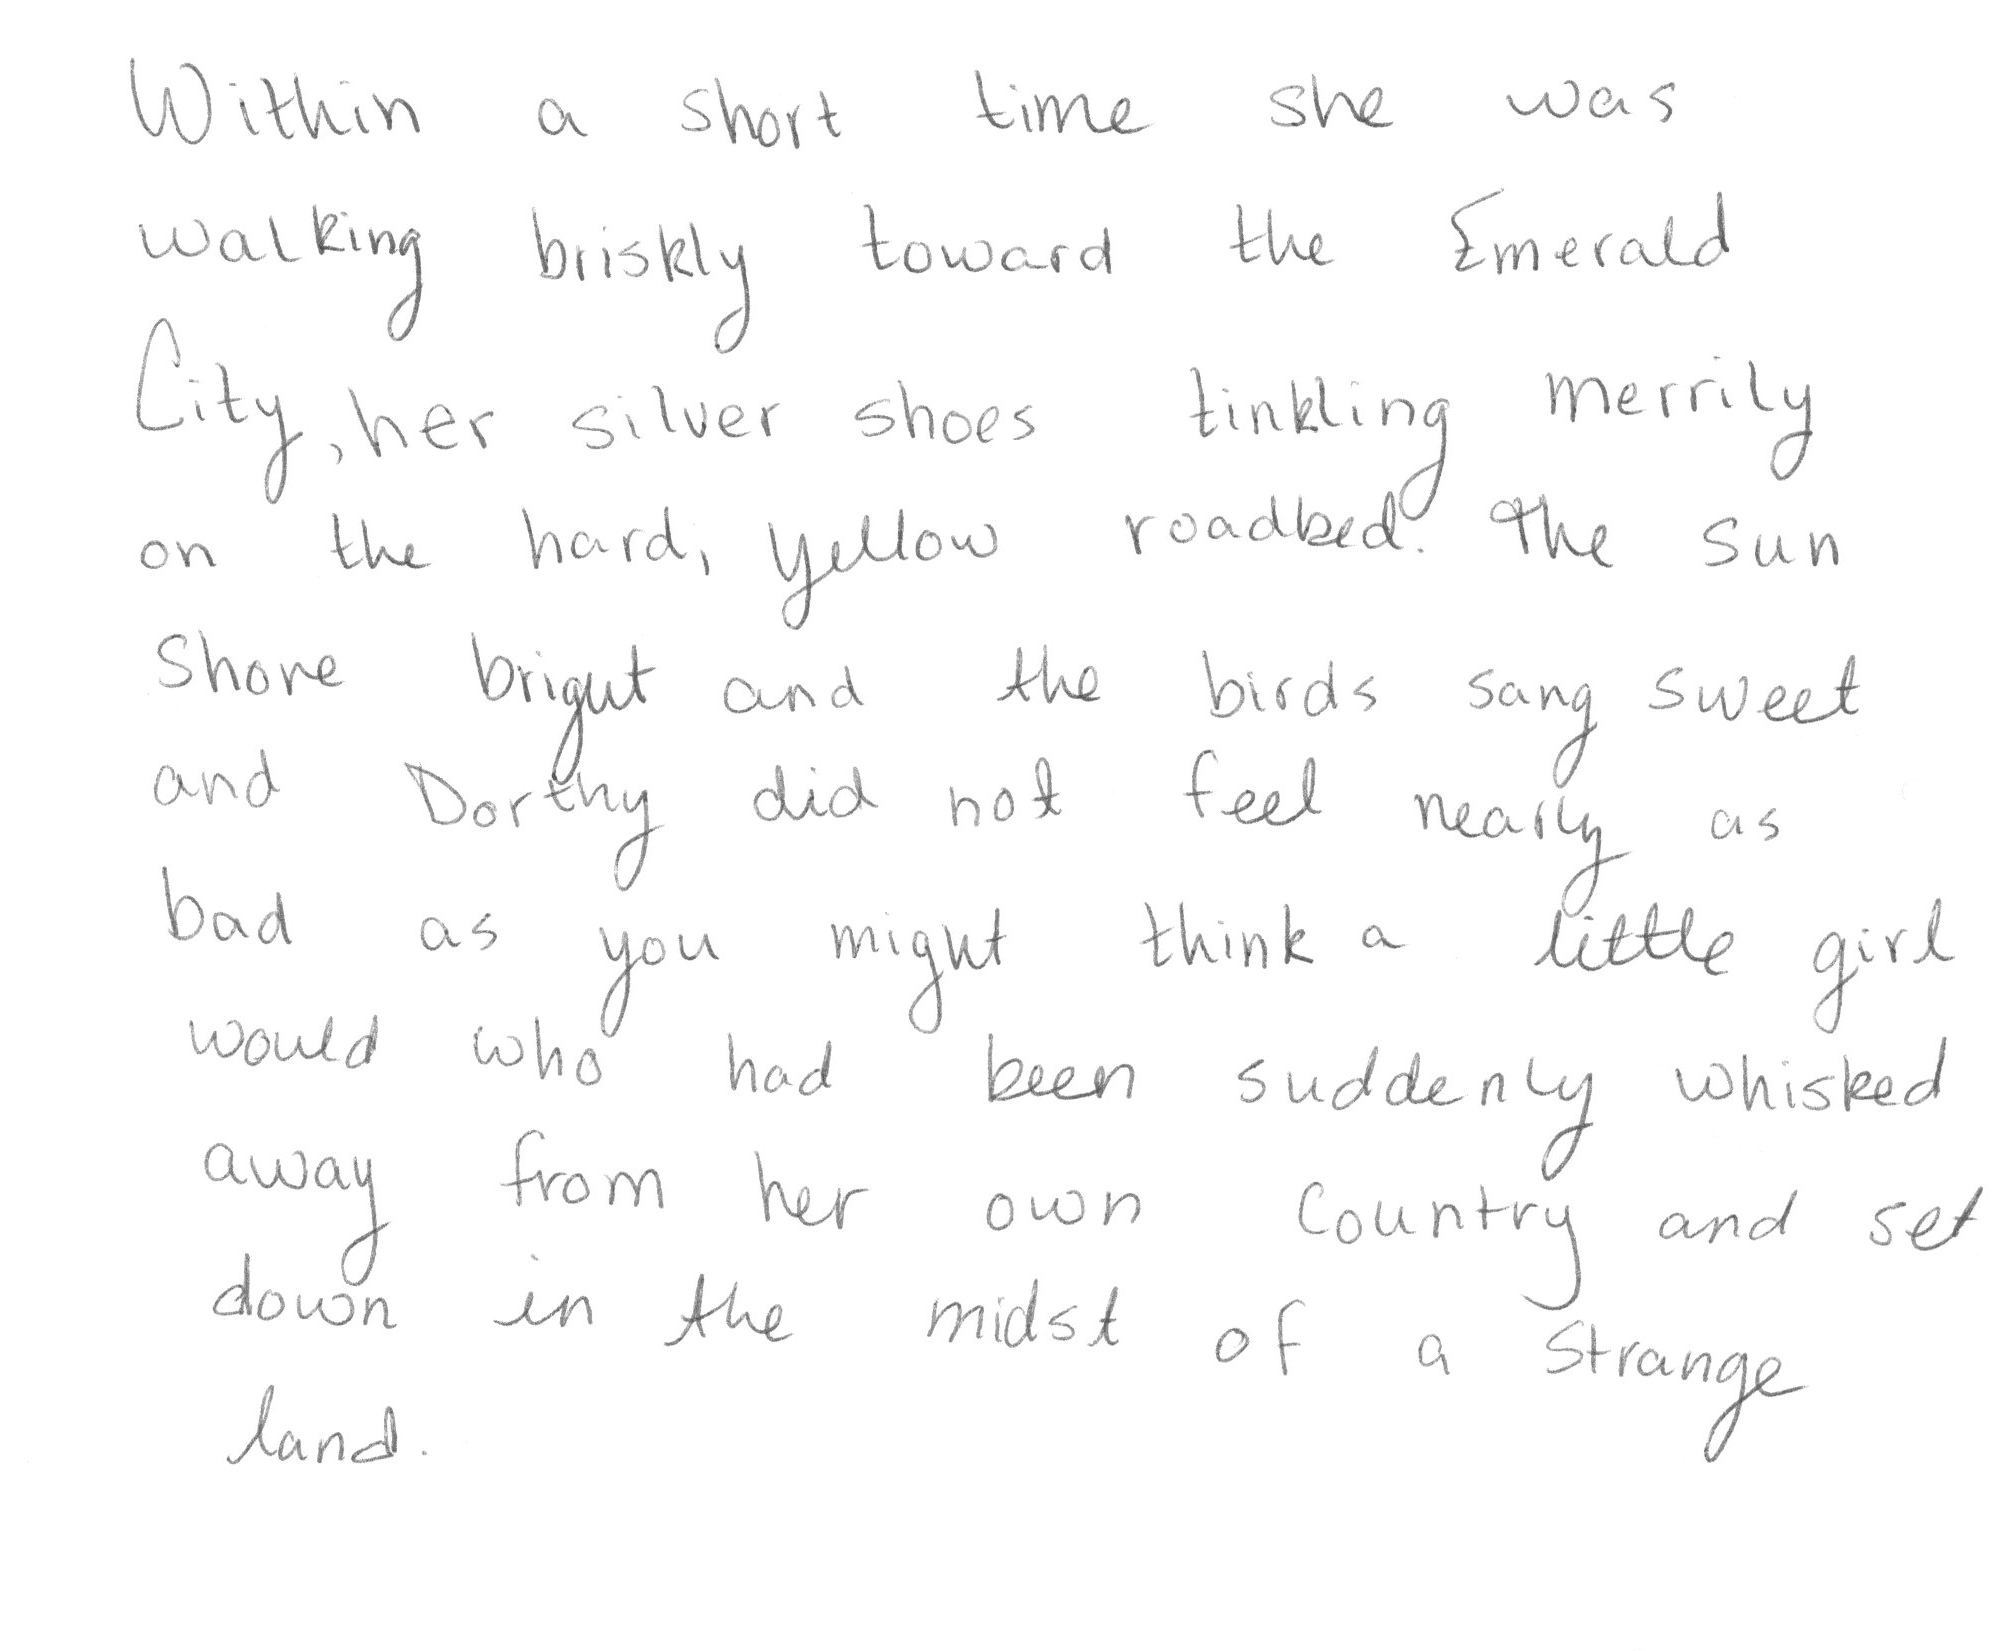 Within a short time she was
walking briskly toward the Emerald
City, her silver shoes tinkling merrily
on the hard, yellow roadbed. The sun
Shone bright and the birds sang sweet
and Dorthy did not feel nearly as
bad as you might think a little girl
would who had been suddenly whisked
away from her own Country and set
down in the midst of a strange
land.